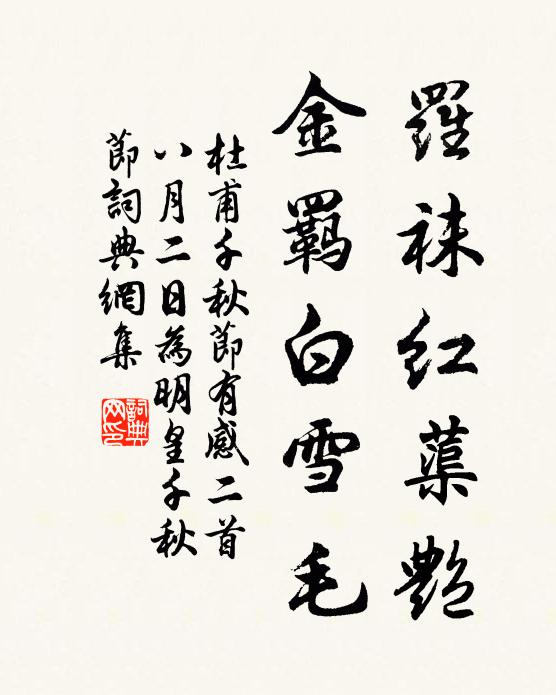 羅袜红蕖艷
金羈白雪毛
杜甫千秋節有感二首
八月二日為明皇千秋
節詞典網集
詞典
网印